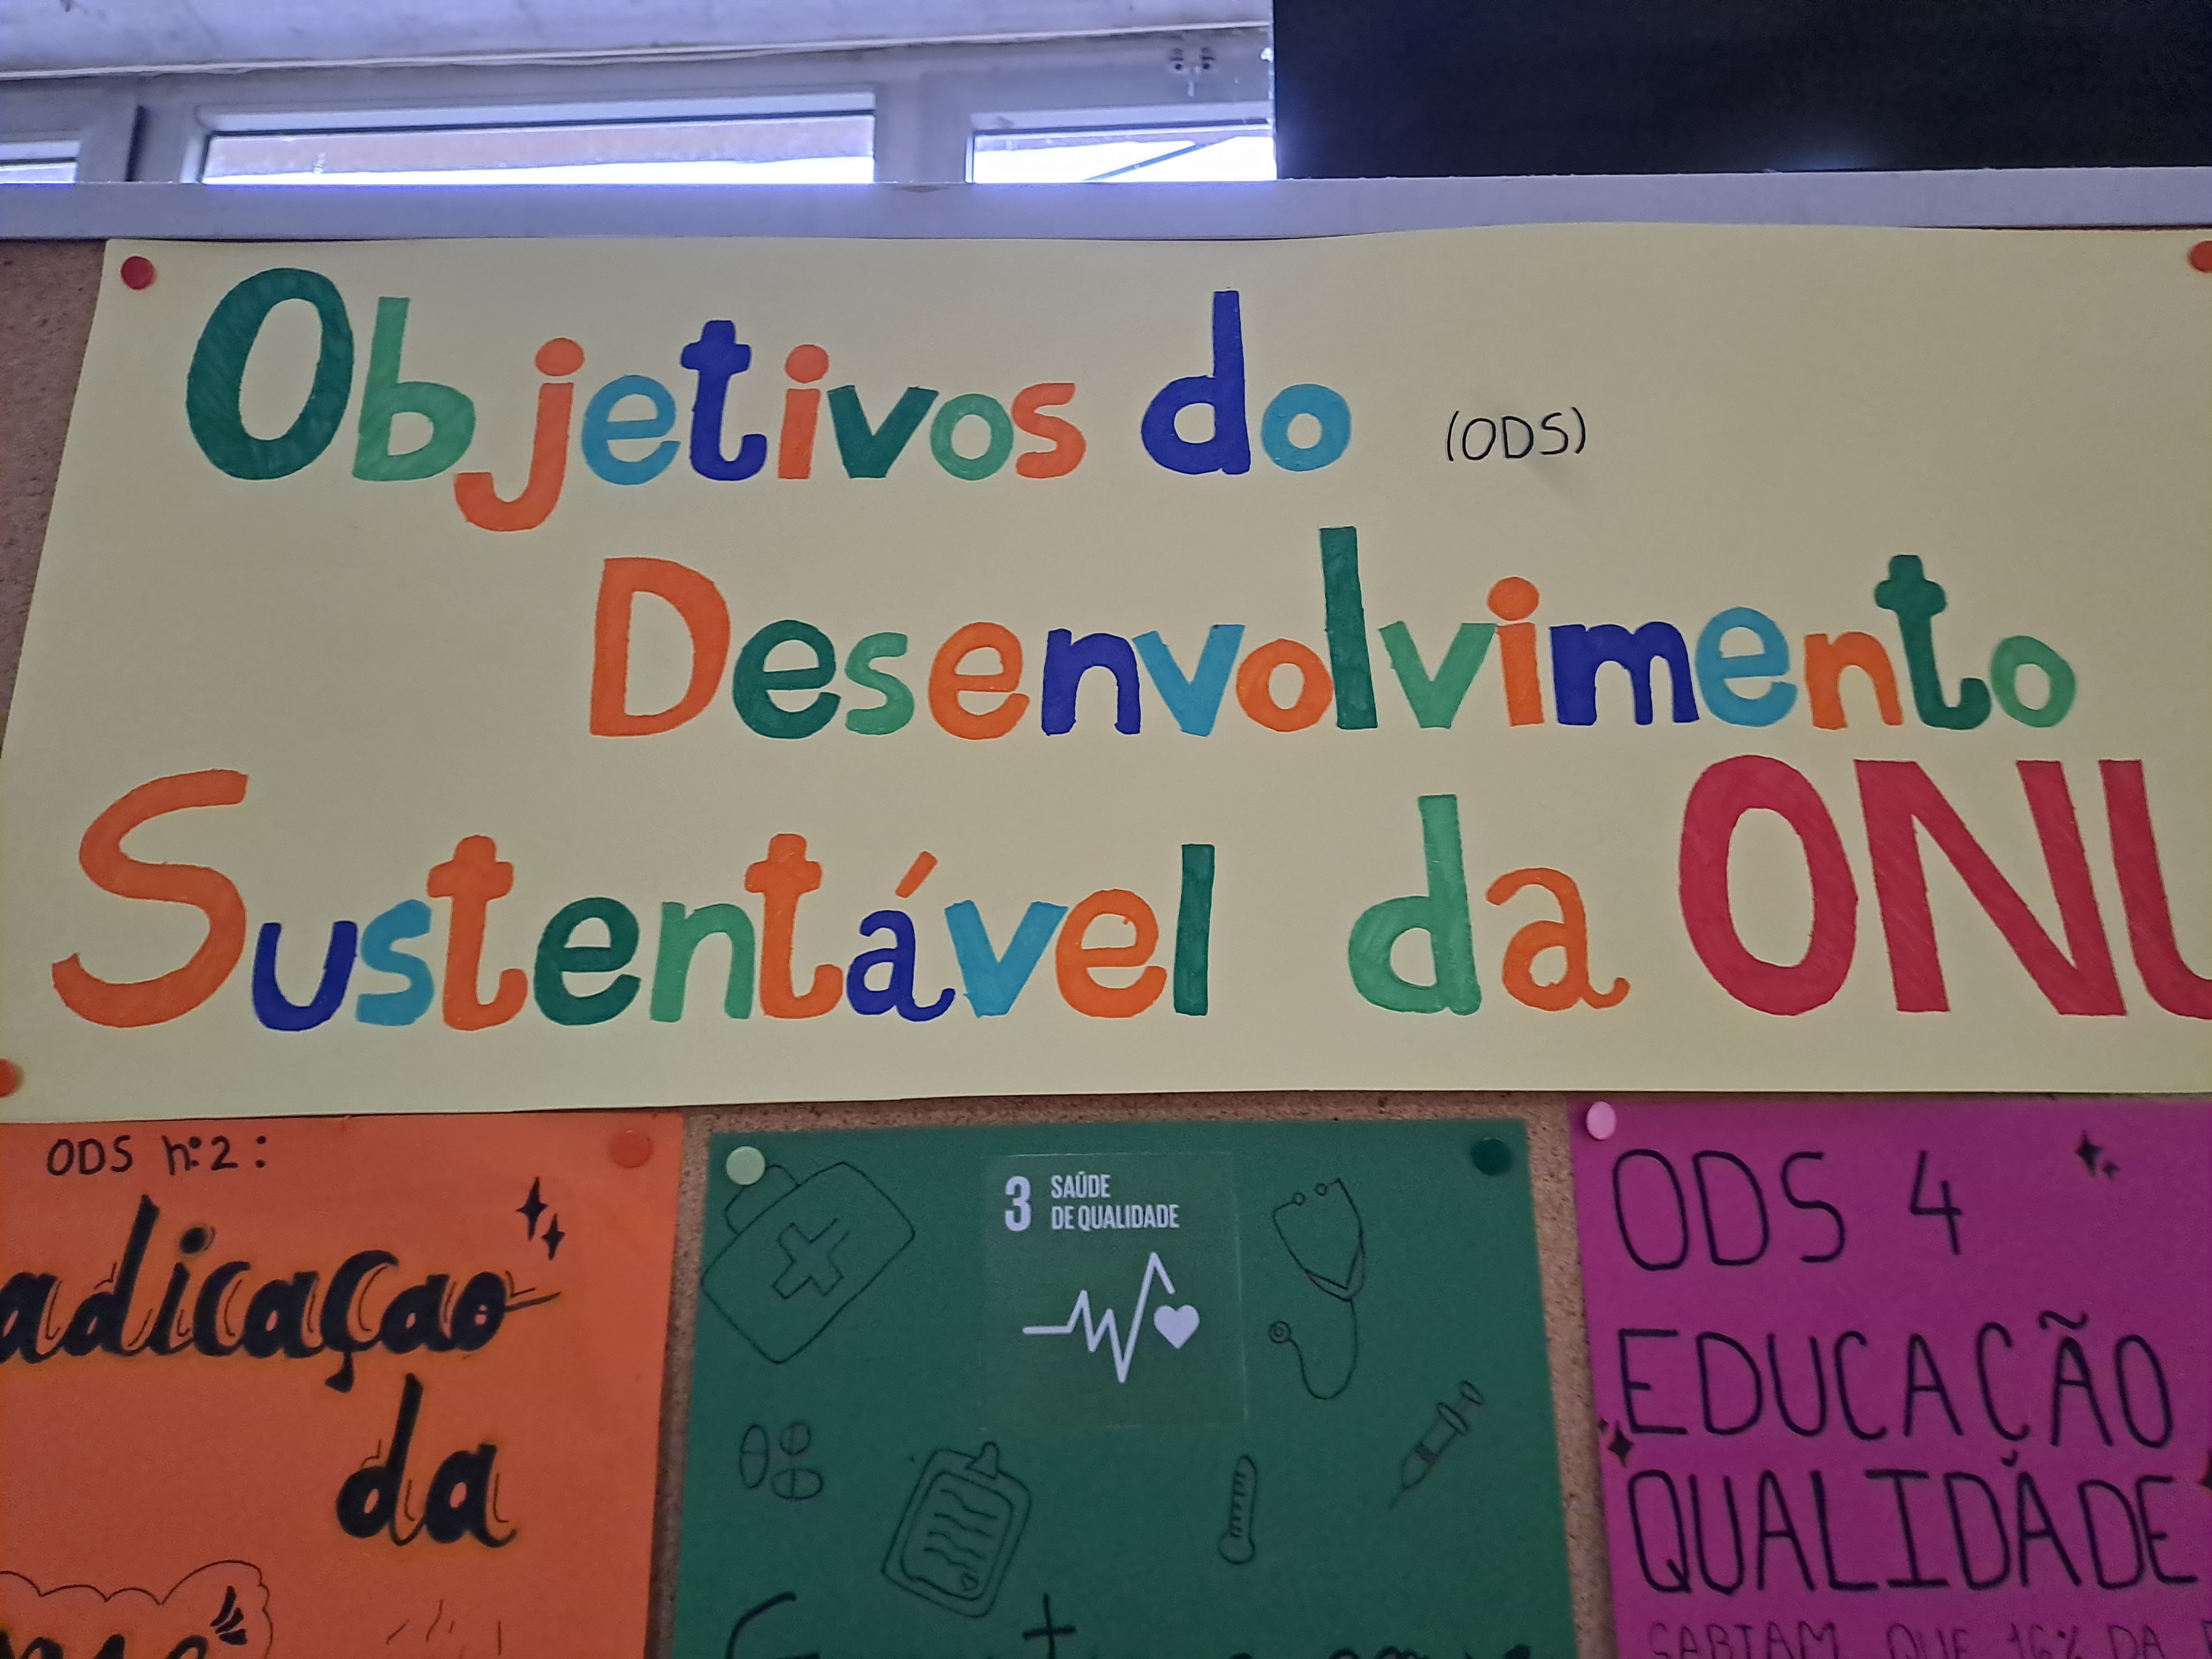 Objetivos do (ODS)
Desenvolvimento
Sustentável da ONU
ODS nº2:
adicaçao
da
3 SAÚDE
DE QUALIDADE
ODS 4
EDUCAÇÃO
QUALIDADE
SABIAM QUE 16% DA